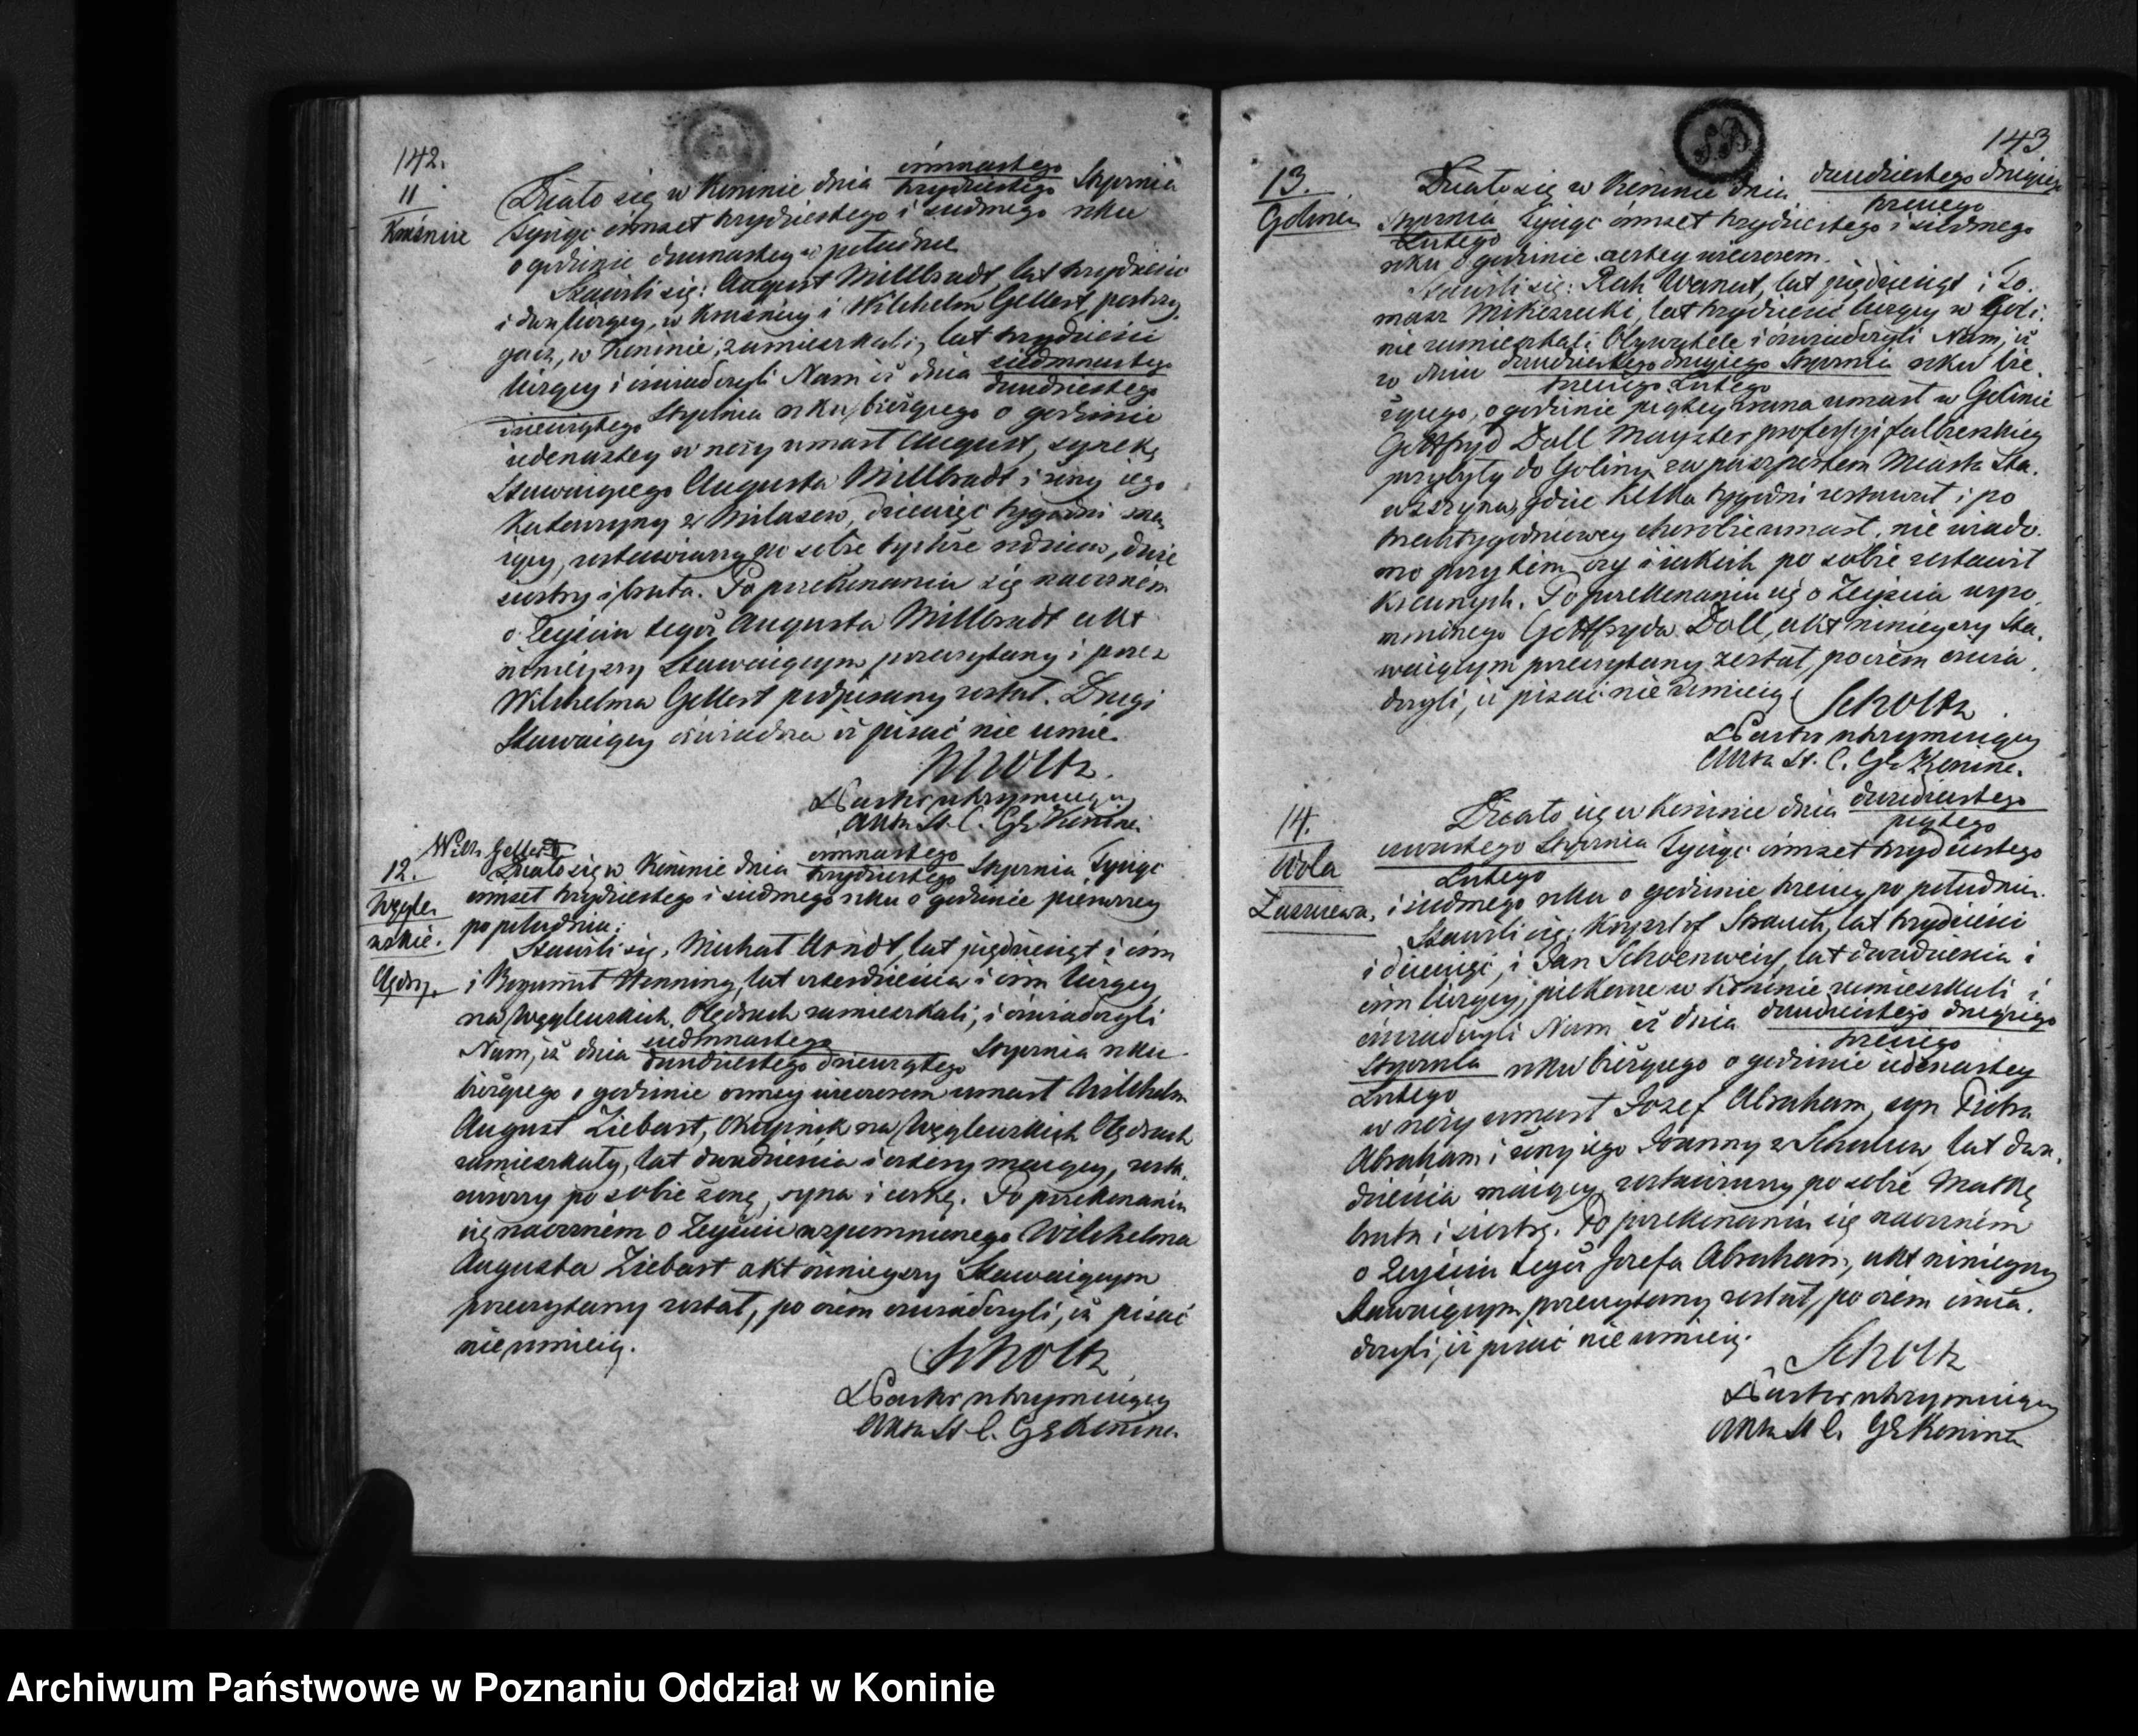 142.
11
Kraśnice
Działo się w Koninie dnia ośmnastego / trzydziestego Stycznia
Tysiąc ośmset trzydziestego i siódmego roku
o godzinie dwunastey w południe
Stawili się: August Millbradt, lat trzydzieści
i dwa liczący, w Kraśnicy i Wilchelm Gellert, portrzy
w Koninie, zamieszkali, lat trzydzieści
liczący i oświadczyli Nam iż dnia siedmnastego / dwudziestego
dziewiątego Stycznia roku bieżącego o godzinie
iedenastey w nocy umarł August, synek
Stawaiącego Augusta Millbradt i żony iego
Katarzyny z Milasew, dziewięć tygodni ma
iący, zostawiwszy po sobie tychże rodziców, dwie
siostry i brata. Po przekonaniu się naocznem
o Zeyściu tegoż Augusta Millbradt akt
ninieyszy Stawaiącym przeczytany i przez
Wilchelma Gellert podpisany został. Drugi
Stawaiący oświadcza iż pisać nie umie.
Scholtz.
Pastor utrzymuiący
Akta St. C. GE Konina
Wilh. Gellert
12.
Węgle
wskie
Olędry.
Działo się w Koninie dnia ośmnastego / trzydziestego Stycznia Tysiąc
ośmset trzydziestego i siódmego roku o godzinie pierwszey
po południu;
Stawili się, Michał Arndt, lat pięćdziesiąt i ośm
i Bogumił Henning, lat czterdzieścia i ośm liczący
na Węglewskich Olędrach zamieszkali, i oświadczyli
Nam, iż dnia siedmnastego / dwudziestego dziewiątego Stycznia roku
bieżącego o godzinie osmey wieczorem umarł Wilchelm
August Ziebart, Okupnik na Węglewskich Olędrach
zamieszkały, lat dwadzieścia i cztery maiący, zosta
wiwszy po sobie żonę, syna i corkę. Po przekonaniu
się naocznem o Zeyściu wspomnionego Wilchelma
Augusta Ziebart akt ninieyszy Stawaiącym
przeczytany został, po czem oświadczyli, iż pisać
nie umieią.
Scholtz
Pastor utrzymuiący
Akta St. C. GE Konina
143
13.
Golina
Działo się w Koninie dnia dwudziestego drugiego / trzeciego
Stycznia / Lutego Tysiąc ośmset trzydziestego i siódmego
roku o godzinie szostey wieczorem.
Stawili się: Wanat, lat pięćdziesiąt i To
masz Mikorzecki, lat trzydzieści liczący w Goli
nie zamieszkali Obywatele i oświadczyli Nam, iż
w dniu dwudziestego drugiego Stycznia / trzeciego Lutego roku bie
żącego, o godzinie piątey zrana umarł w Golinie
Gottfryd Doll Mayster professyi falbierskiey
przybyły do Goliny za paszportem Miasta Sta
wiszyna, gdzie kilka tygodni zostawał i po
trzechtygodniowey chorobie umarł, nie wiado
mo przytem czy i iakich po sobie zostawił
krewnych. Po przekonaniu się o Zeyściu wspo
mnionego Gottfryda Doll, akt ninieyszy Sta
waiącym przeczytany został, poczem oświa
dczyli, iż pisać nie umieią.
Scholtz
Pastor utrzymuiący
Akta St. C. GE Konina.
14.
Wola
Działo się w Koninie dnia dwudziestego / piątego
czwartego Stycznia / Lutego Tysiąc ośmset trzydziestego
i siódmego roku o godzinie trzeciey po południu.
Stawili się: Krysztof Strauch, lat trzydzieści
i dziewięć, i Jan Schoenweis, lat dwadzieścia i
ośm liczący, piekarze w Koninie zamieszkali i
oświadczyli Nam iż dnia dwudziestego drugiego / trzeciego
Stycznia / Lutego roku bieżącego o godzinie iedenastey
w nocy umarł Jozef Abraham, syn Piotra
Abraham i żony iego Joanny z Schulew, lat dwa
dzieścia maiący, zostawiwszy po sobie Matkę
brata i siostrę. Po przekonaniu się naocznem
o Zeyściu tegoż Jozefa Abraham, akt ninieyszy
Stawaiącym przeczytany został, po czem oświa
dczyli, iż pisać nie umieią.
Scholtz
Pastor utrzymuiący
Akta St. C. GE Konina
Archiwum Państwowe w Poznaniu Oddział w Koninie